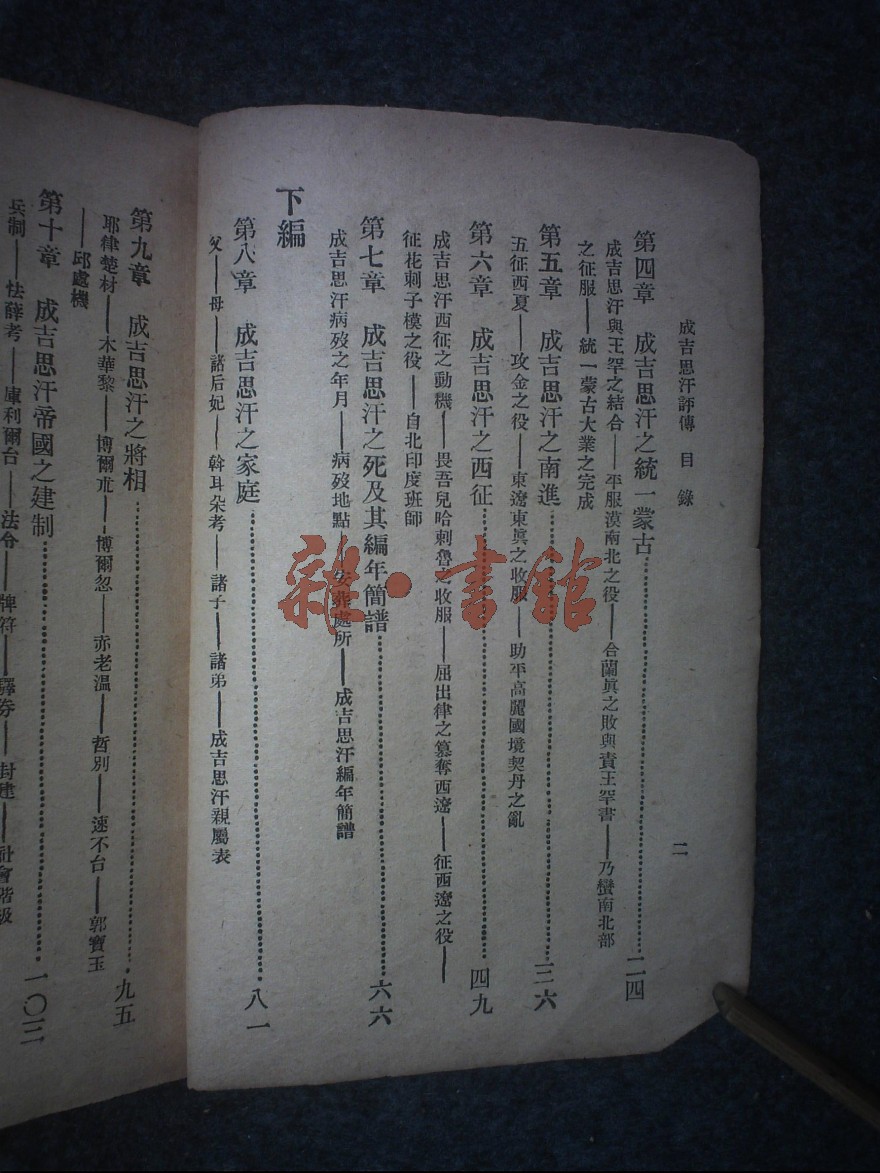 成吉思汗評傳 目錄
二
第四章 成吉思汗之統一蒙古……二四
成吉思汗與王罕之結合——平服漠南北之役——合蘭眞之敗與責王罕書——乃蠻南北部
之征服——統一蒙古大業之完成
第五章 成吉思汗之南進……三六
五征西夏——攻金之役——東遼東眞之收服——助平高麗國境契丹之亂
第六章 成吉思汗之西征……四九
成吉思汗西征之動機——畏吾兒哈剌魯之收服——屈出律之篡奪西遼——征西遼之役——
征花剌子模之役——自北印度班師
第七章 成吉思汗之死及其編年簡譜……六六
成吉思汗病歿之年月——病歿地點——安葬處所——成吉思汗編年簡譜
下編
第八章 成吉思汗之家庭……八一
父——母——諸后妃——斡耳朵考——諸子——諸弟——成吉思汗親屬表
第九章 成吉思汗之將相……九五
耶律楚材——木華黎——博爾朮——博爾忽——赤老温——哲別——速不台——郭寶玉
——邱處機
第十章 成吉思汗帝國之建制……一〇三
兵制——怯薛考——庫利爾台——法令——牌符——驛券——封建——社會階級
雜·書館